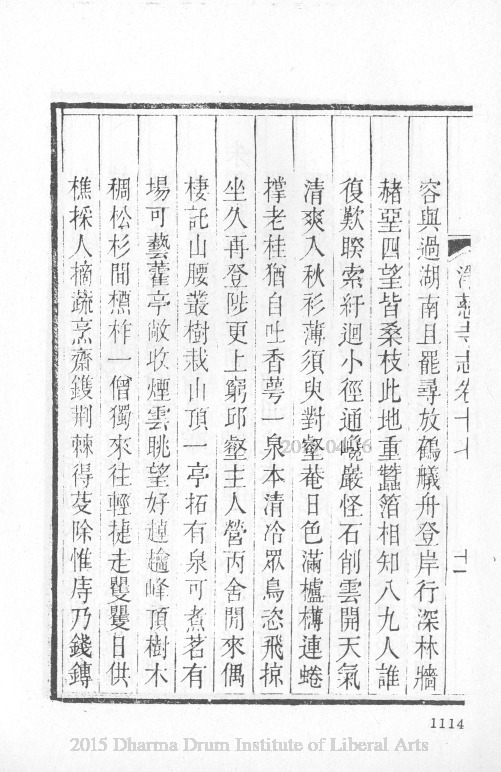 淨慈寺志卷十七 十一
容與過湖南且罷尋放鶴艤舟登岸行深林牆
赭堊四望皆桑枝此地重蠶箔相知八九人誰
復歎睽索紆迴小徑通巉巖怪石削雲開天氣
清爽入秋衫薄須臾對壑菴日色滿櫨欂連蜷
撑老桂猶自吐香萼一泉本清冷眾鳥恣飛掠
坐久再登陟更上窮邱壑主人營丙舍閒來偶
棲託山腰叢樹栽山頂一亭拓有泉可煮茗有
場可藝藿亭敞收煙雲眺望好趠峰頂樹木
稠松杉間柞一僧獨來往輕捷走矍矍日供
樵採人摘蔬烹齋鑊荆棘得芟除惟庤乃錢鎛
1114
2015 Dharma Drum Institute of Liberal Arts